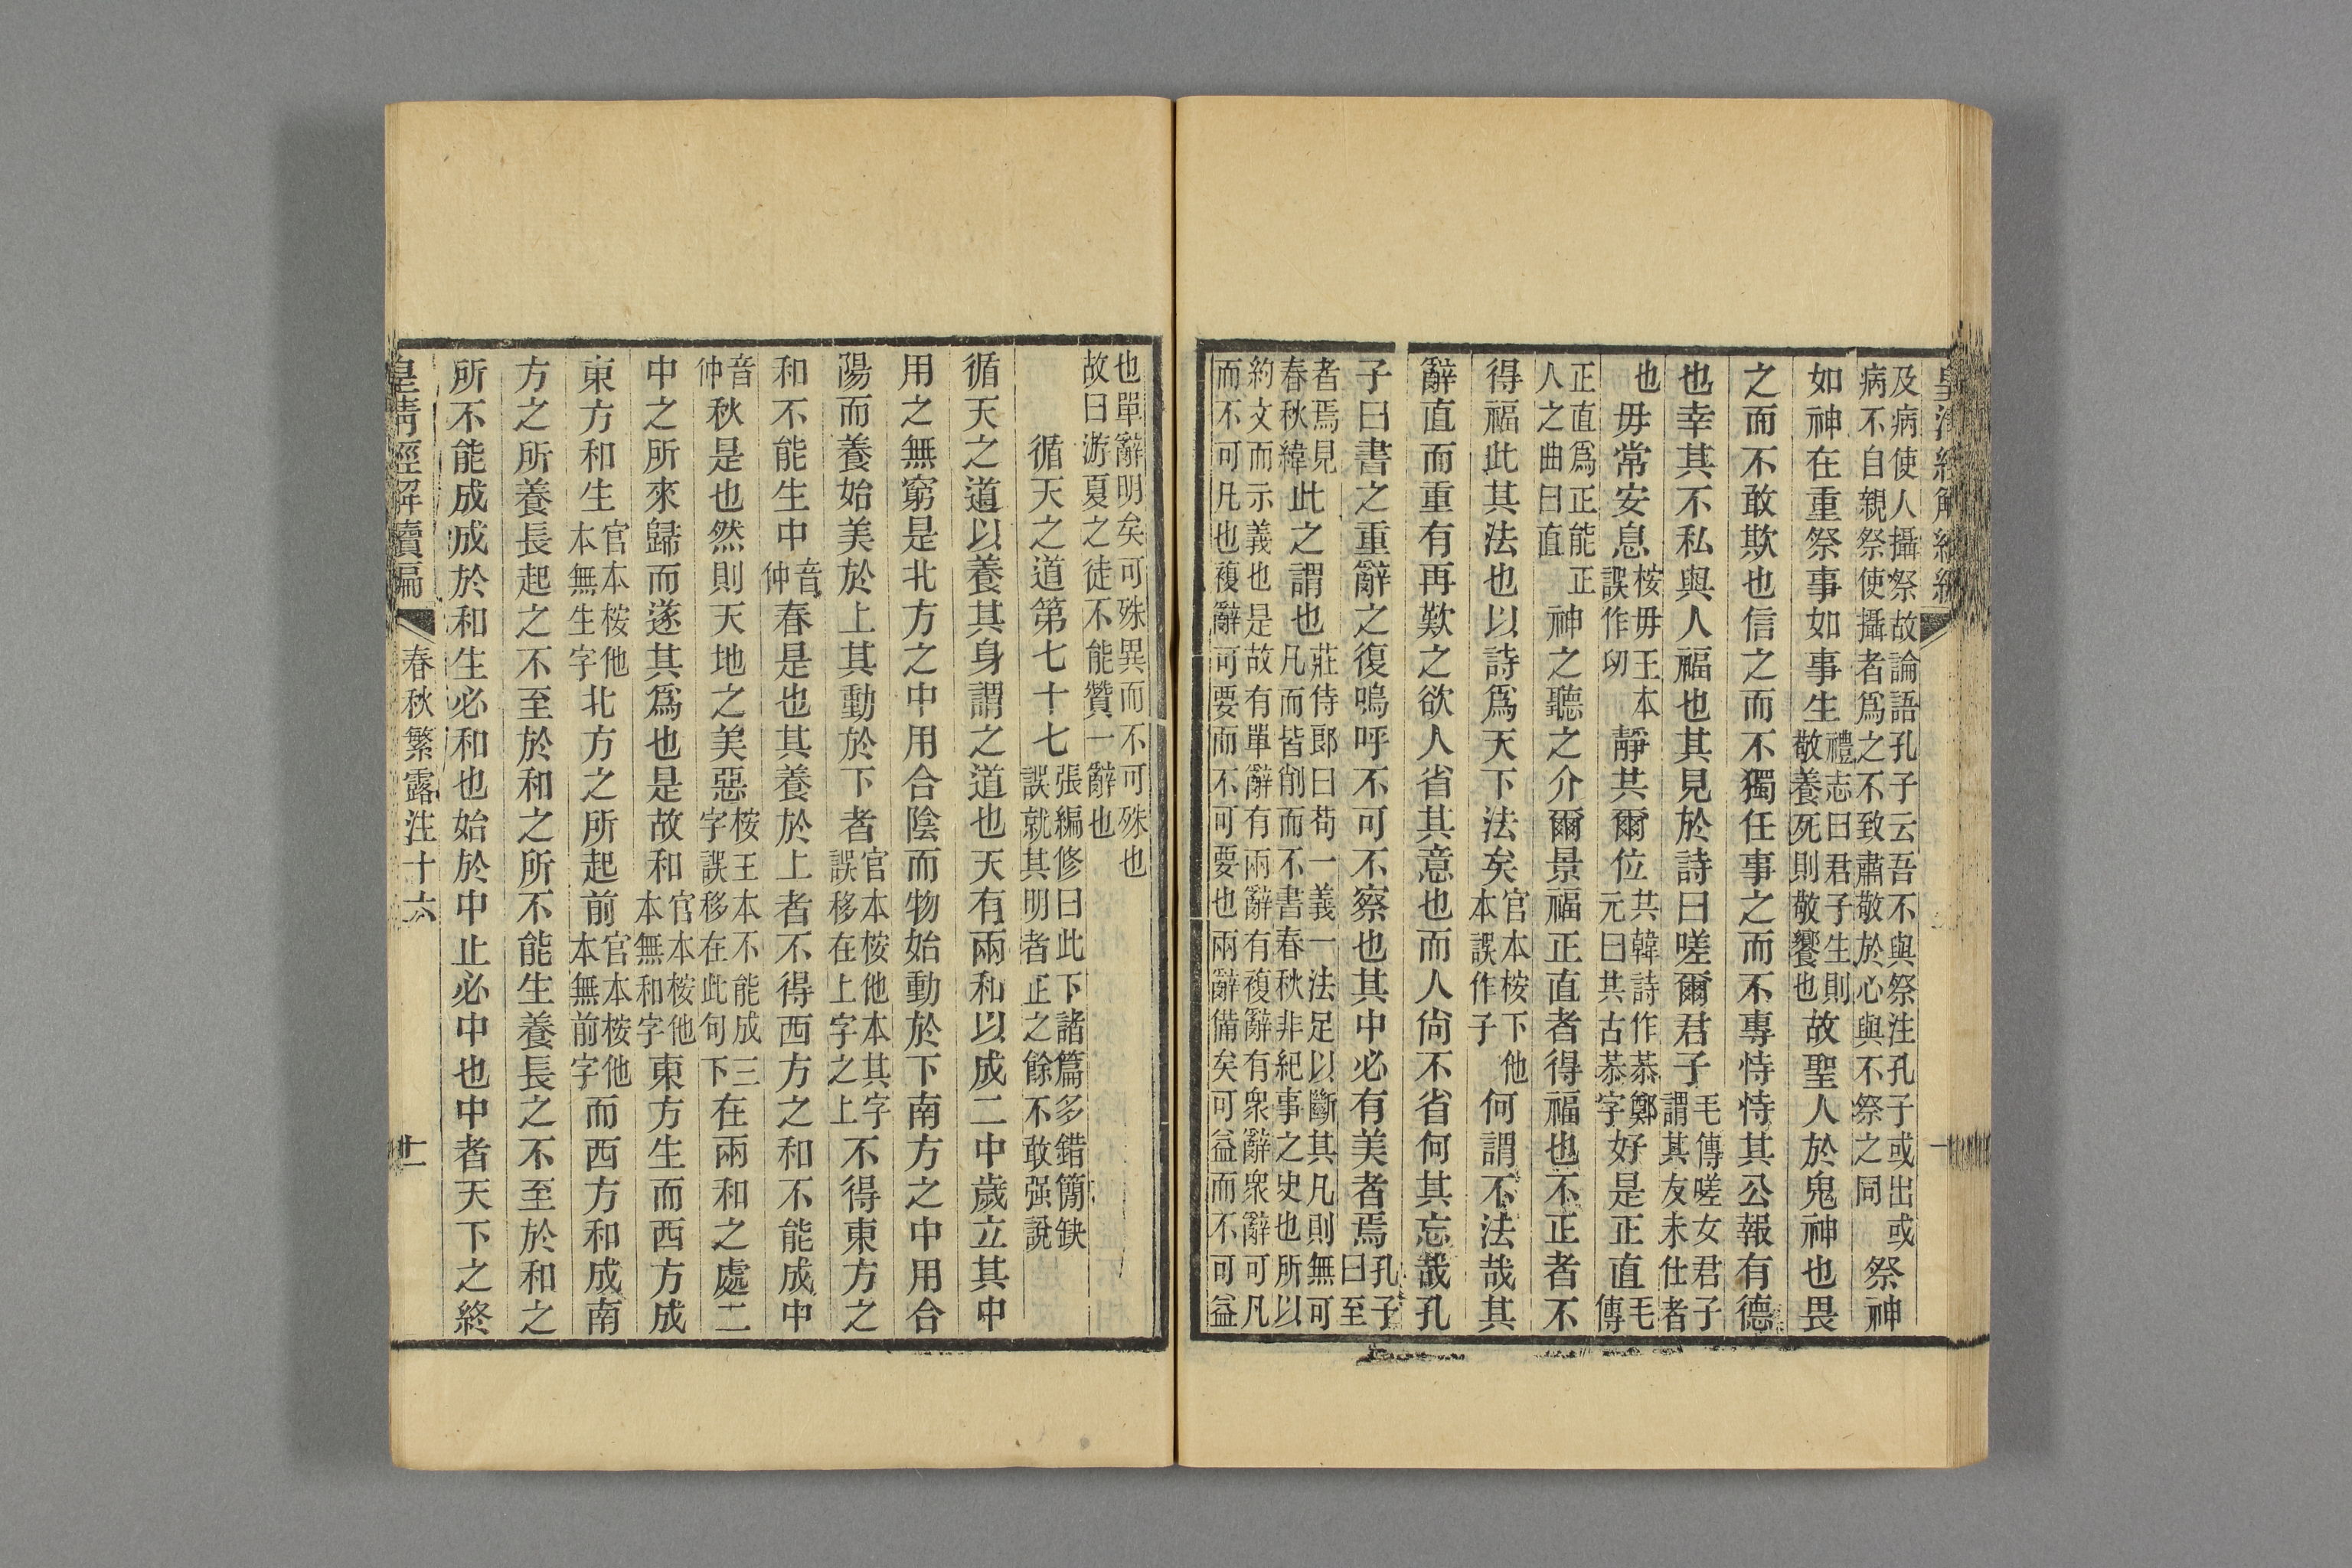 及病使人攝祭故論語孔子云吾不與祭注孔子或出或病不自親祭使攝者爲之不致肅敬於心與不祭之同祭神
如神在重祭事如事生禮志曰君子生則敬養死則敬饗也故聖人於鬼神也畏
之而不敢欺也信之而不獨任事之而不專恃恃其公報有德
也幸其不私與人福也其見於詩曰嗟爾君子毛傳嗟女君子謂其友未仕者
也毋常安息桉毋王本誤作切靜共爾位共韓詩作恭鄭元曰共古恭字好是正直毛傳
正直爲正能正人之曲曰直神之聽之介爾景福正直者得福也不正者不
得福此其法也以詩爲天下法矣官本桉下他本誤作子何謂不法哉其
辭直而重有再歎之欲人省其意也而人尙不省何其忘哉孔
子曰書之重辭之復嗚呼不可不察也其中必有美者焉孔子曰至
者焉見春秋緯此之謂也莊侍郎曰苟一義一法足以斷其凡則無可凡而皆削而不書春秋非紀事之史也所以
約文而示義也是故有單辭有兩辭有複辭有衆辭衆辭可凡而不可凡也複辭可要而不可要也兩辭備矣可益而不可益
也單辭明矣可殊異而不可殊也故曰游夏之徒不能贊一辭也
循天之道第七十七張編修曰此下諸篇多錯簡缺誤就其明者正之餘不敢强說
循天之道以養其身謂之道也天有兩和以成二中歲立其中
用之無窮是北方之中用合陰而物始動於下南方之中用合
陽而養始美於上其動於下者官本桉他本其字誤移在上字之上不得東方之
和不能生中音仲春是也其養於上者不得西方之和不能成中
音仲秋是也然則天地之美惡桉王本不能成三字誤移在此句下在兩和之處二
中之所來歸而遂其爲也是故和官本桉他本無和字東方生而西方成
東方和生官本桉他本無生字北方之所起前官本桉他本無前字而西方和成南
方之所養長起之不至於和之所不能生養長之不至於和之
所不能成成於和生必和也始於中止必中也中者天下之終
皇清經解續編 春秋繁露注十六